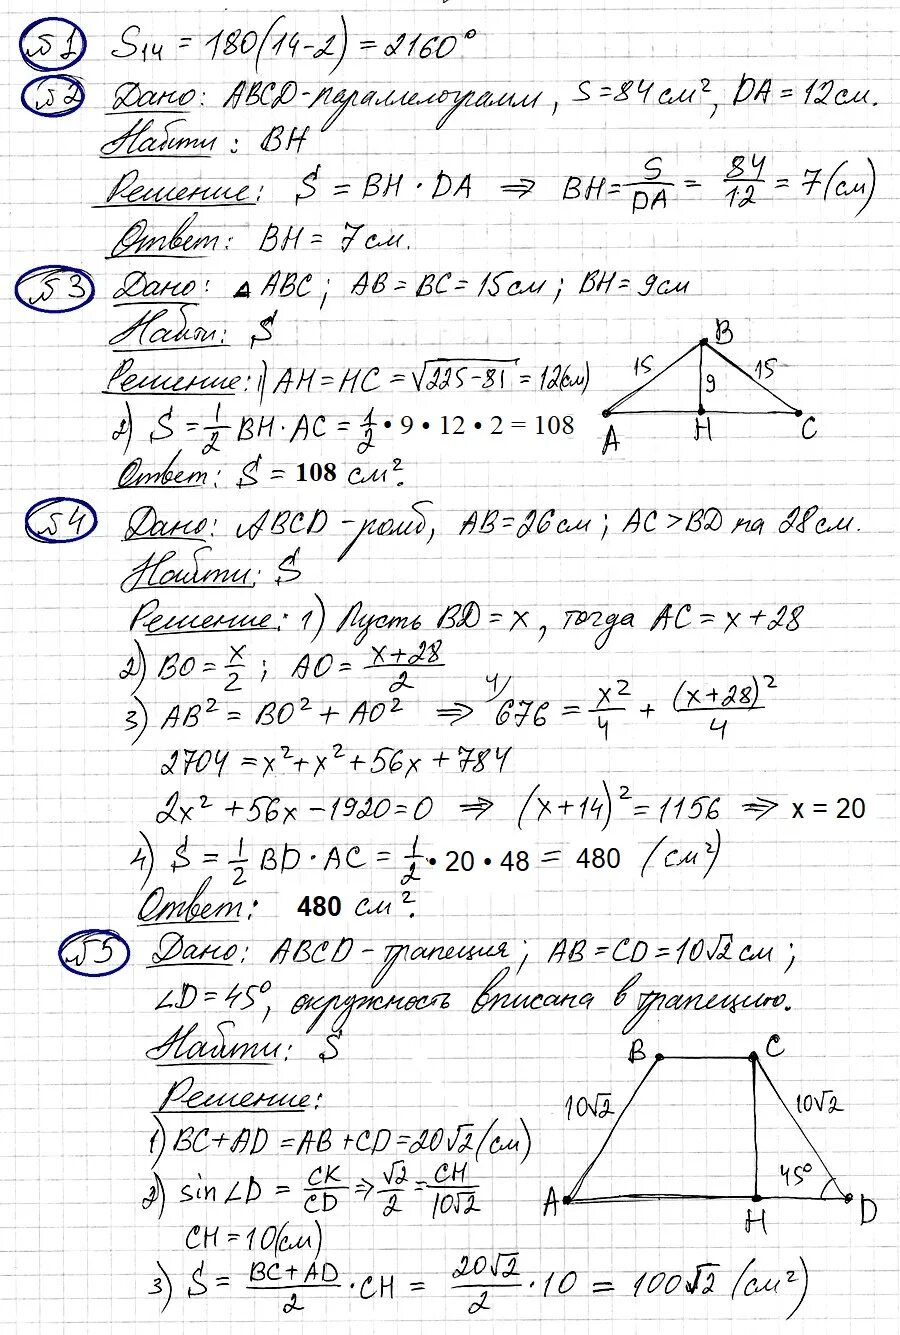 №1 S₁₄ = 180(14-2) = 2160°
№2 Дано: ABCD-параллелограмм, S=84 см², DA=12см.
Найти: BH
Решение: S = BH · DA ⇒ BH = S/DA = 84/12 = 7(см)
Ответ: BH = 7см.
№3 Дано: △ABC; AB=BC=15см; BH=9см
Найти: S
Решение: 1) AH=HC=√(225-81)=12(см)
2) S=1/2 BH·AC=1/2 • 9 • 12 • 2 = 108
Ответ: S = 108 см².
B
15
9
15
A
H
C
№4 Дано: ABCD-ромб, AB=26см; AC>BD на 28см.
Найти: S
Решение: 1) Пусть BD=x, тогда AC=x+28
2) BO=x/2; AO=(x+28)/2
3) AB²=BO²+AO² ⇒ ⁴⁾676=x²/4+(x+28)²/4
2704=x²+x²+56x+784
2x²+56x-1920=0 ⇒ (x+14)²=1156 ⇒ x = 20
4) S=1/2 BD·AC=1/2 • 20 • 48 = 480 (см²)
Ответ: 480 см².
№5 Дано: ABCD-трапеция; AB=CD=10√2см;
∠D=45°, окружность вписана в трапецию.
Найти: S
Решение:
1) BC+AD=AB+CD=20√2(см)
2) sin∠D=CK/CD⇒√2/2=CH/10√2
CH=10(см)
3) S=(BC+AD)/2·CH=20√2/2·10=100√2 (см²)
B
C
10√2
10√2
45°
A
H
D